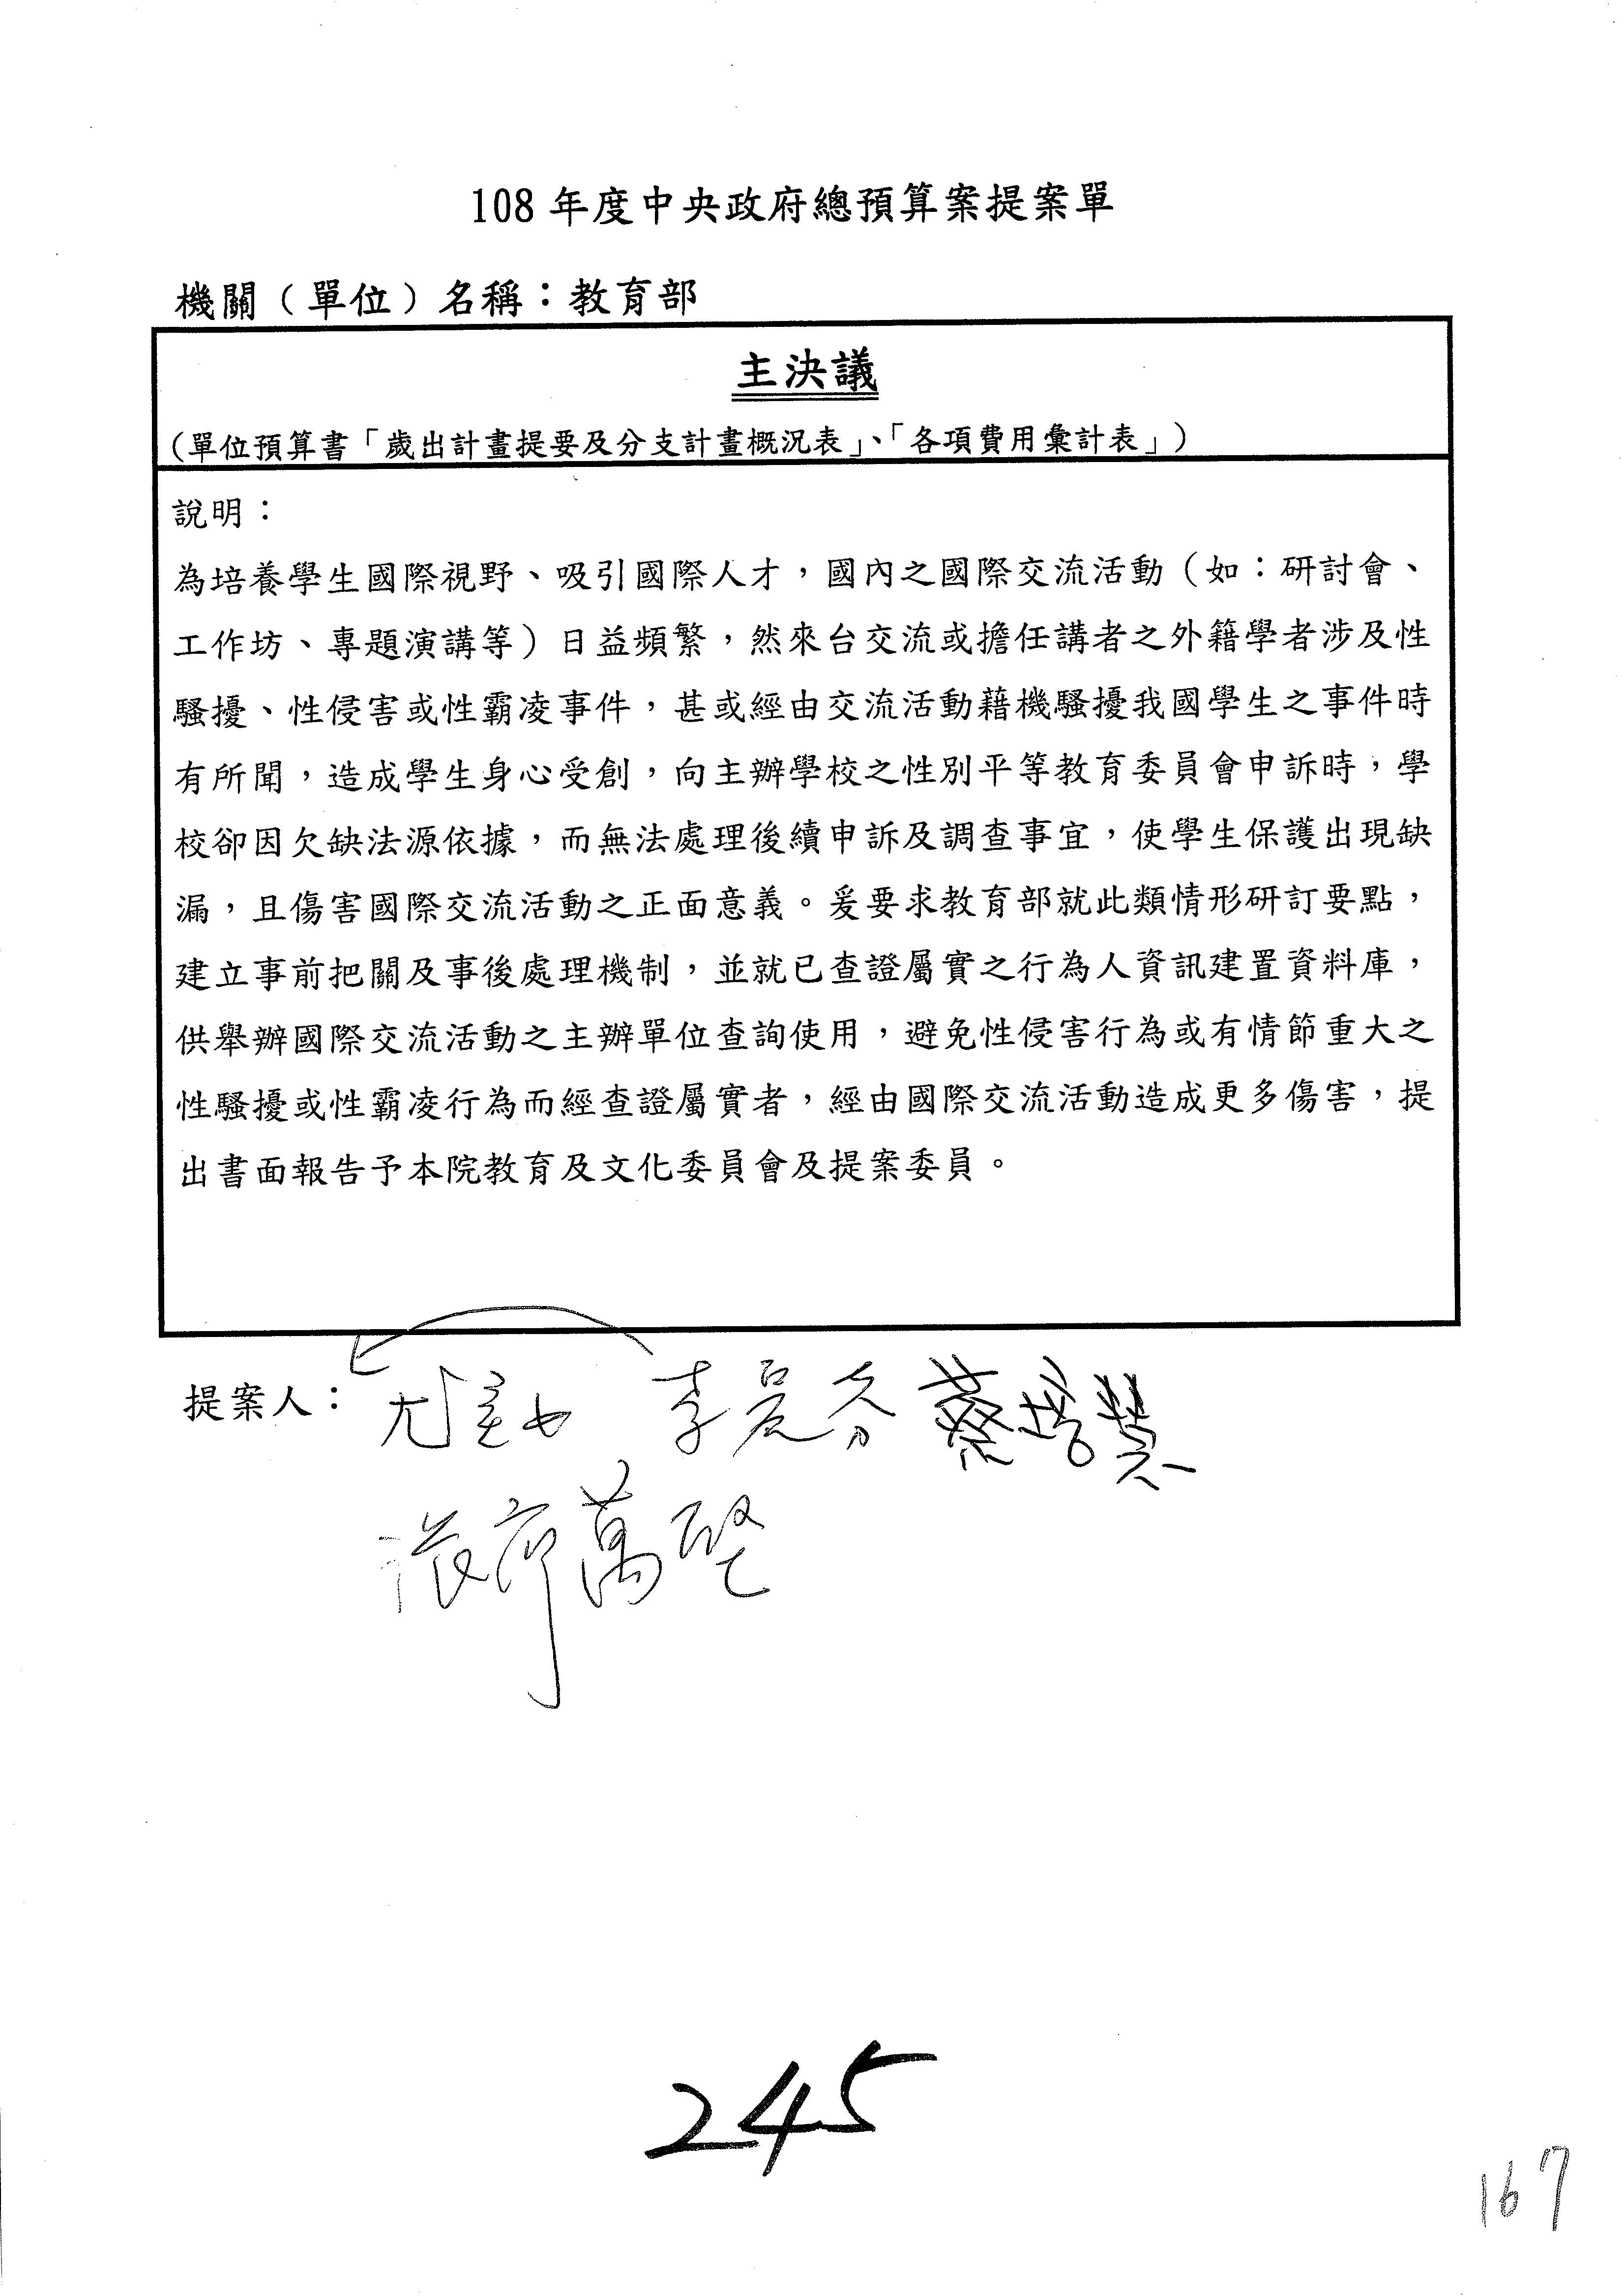 108 年度中央政府總預算案提案單
機關（單位）名稱：教育部
主決議
（單位預算書「歲出計畫提要及分支計畫概況表」、「各項費用彙計表」）
說明：
為培養學生國際視野、吸引國際人才，國內之國際交流活動（如：研討會、
工作坊、專題演講等）日益頻繁，然來台交流或擔任講者之外籍學者涉及性
騷擾、性侵害或性霸凌事件，甚或經由交流活動藉機騷擾我國學生之事件時
有所聞，造成學生身心受創，向主辦學校之性別平等教育委員會申訴時，學
校卻因欠缺法源依據，而無法處理後續申訴及調查事宜，使學生保護出現缺
漏，且傷害國際交流活動之正面意義。爰要求教育部就此類情形研訂要點，
建立事前把關及事後處理機制，並就已查證屬實之行為人資訊建置資料庫，
供舉辦國際交流活動之主辦單位查詢使用，避免性侵害行為或有情節重大之
性騷擾或性霸凌行為而經查證屬實者，經由國際交流活動造成更多傷害，提
出書面報告予本院教育及文化委員會及提案委員。
提案人： 蔡培慧
張廖萬堅
245
167